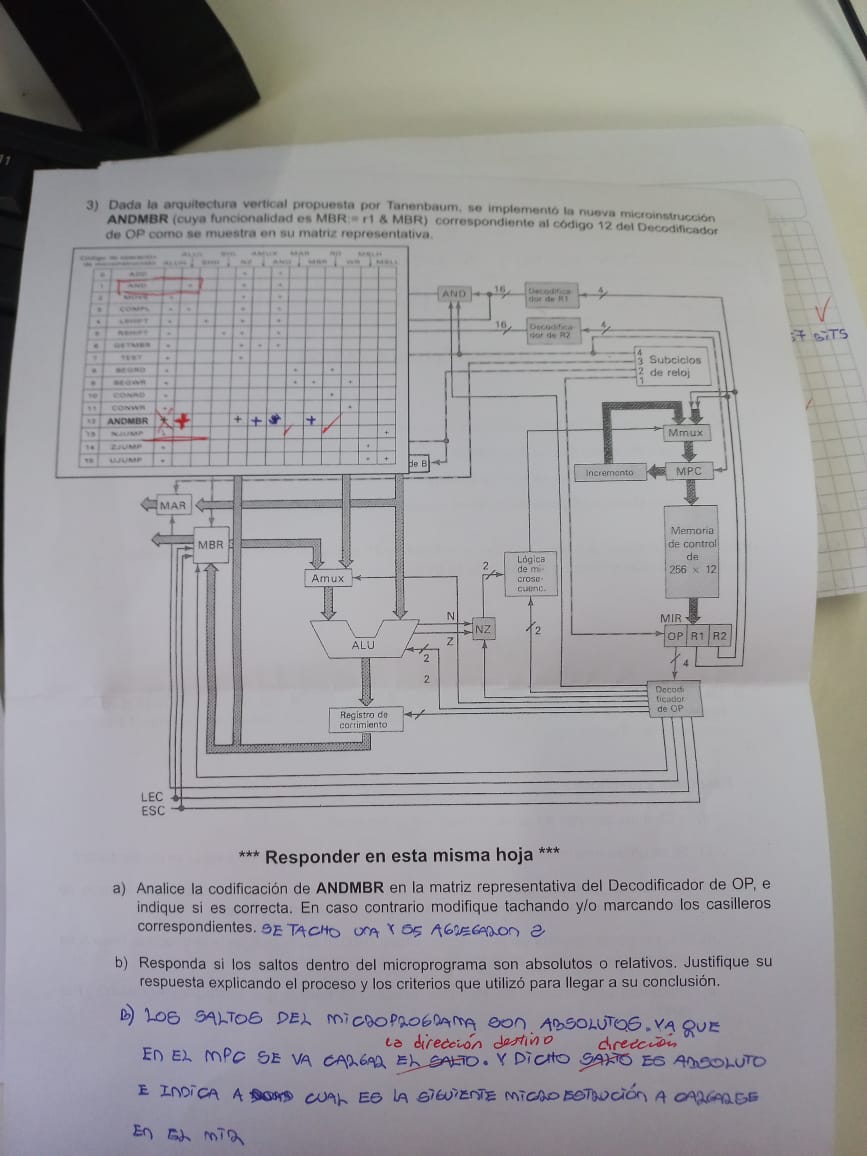 3) Dada la arquitectura vertical propuesta por Tanenbaum, se implementó la nueva microinstrucción
ANDMBR (cuya funcionalidad es MBR:= r1 & MBR) correspondiente al código 12 del Decodificador
de OP como se muestra en su matriz representativa.
0 ADD
1 AND
2 MOVE
3 COMPL
4 LSHIFT
5 RSHIFT
6 GETMBR
7 TEST
8 BEGRD
9 BEGWR
10 CONRD
11 CONWR
12 ANDMBR
13 NJUMP
14 ZJUMP
15 UJUMP
AND
16
Decodifica-
dor de R1
4
16
Decodifica-
dor de R2
4
4
3 Subciclos
2 de reloj
1
57 BITS
Mmux
de B
Incremento
MPC
MAR
MBR
Amux
2
Lógica
de mi-
crose-
cuenc.
Memoria
de control
de
256 × 12
N
NZ
2
MIR
OP R1 R2
ALU
Z
2
4
2
Decodi
ficador
de OP
Registro de
corrimiento
LEC
ESC
*** Responder en esta misma hoja ***
a) Analice la codificación de ANDMBR en la matriz representativa del Decodificador de OP, e
indique si es correcta. En caso contrario modifique tachando y/o marcando los casilleros
correspondientes. SE TACHO UNA Y SE AGREGARON 2
b) Responda si los saltos dentro del microprograma son absolutos o relativos. Justifique su
respuesta explicando el proceso y los criterios que utilizó para llegar a su conclusión.
B) LOS SALTOS DEL MICROPROGRAMA SON ABSOLUTOS. YA QUE
la dirección destino dirección
EN EL MPC SE VA CARGAR EL SALTO. Y DICHO SALTO ES ABSOLUTO
E INDICA A CUAL ES LA SIGUIENTE MICRO ESTRUCIÓN A CARGARSE
EN EL MIR